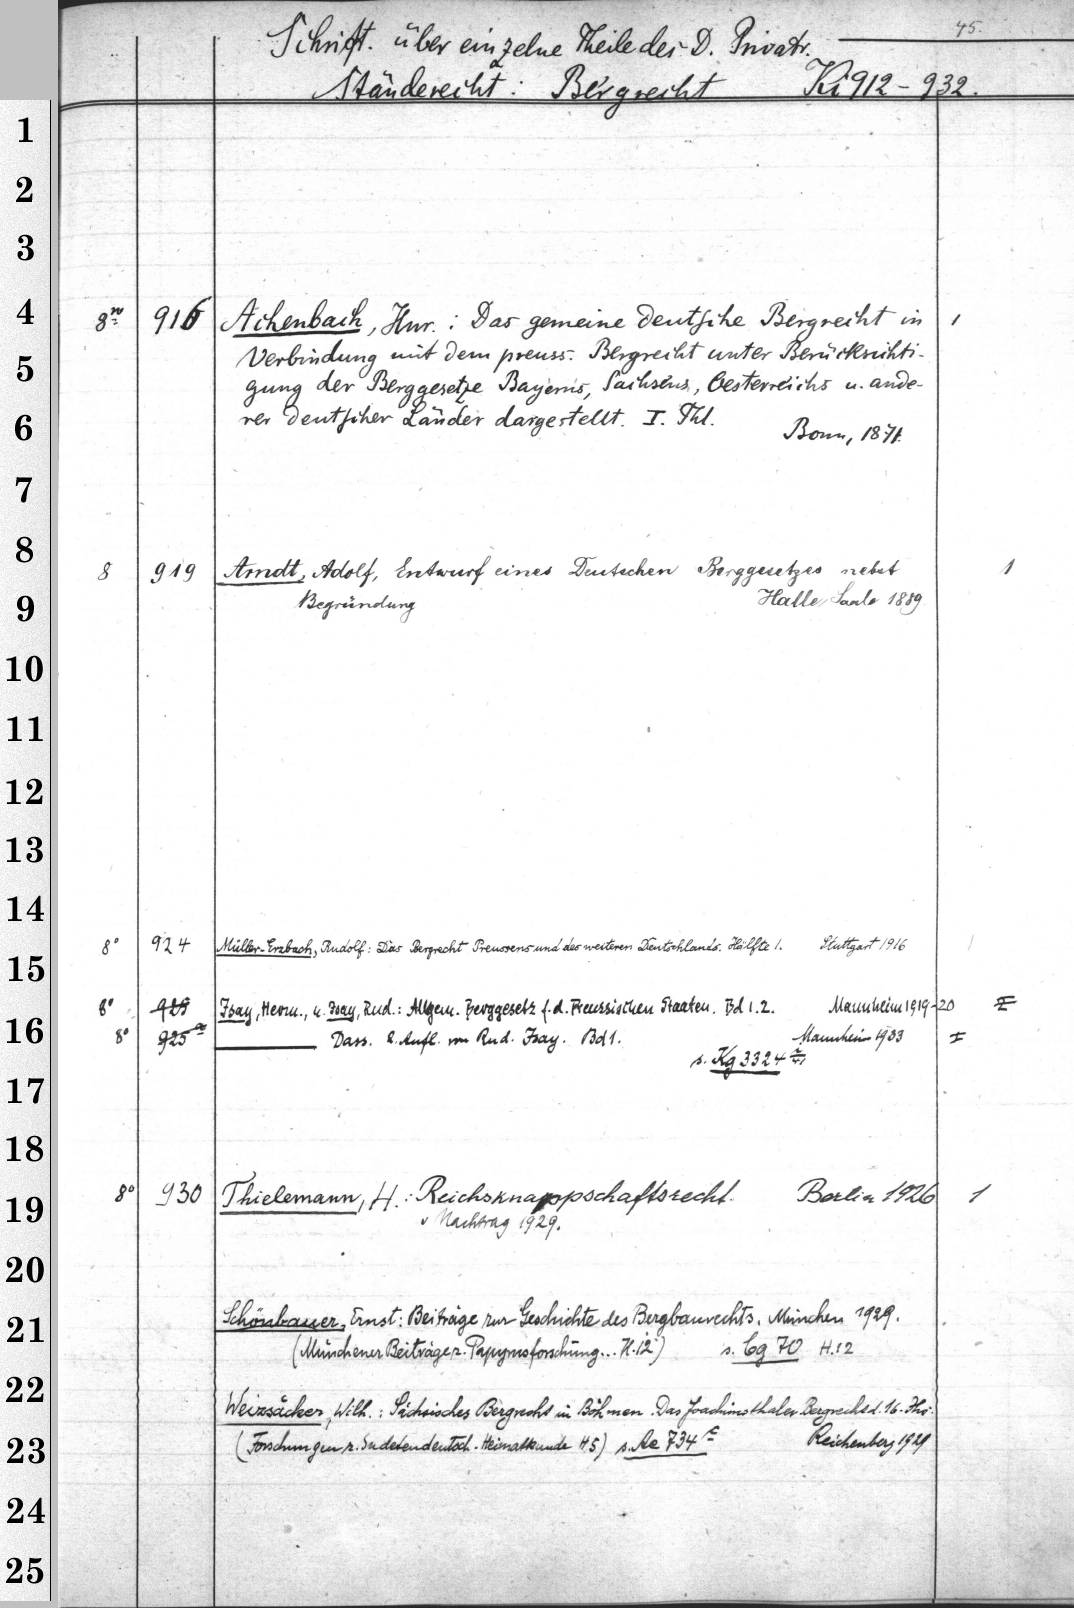 45.
Schrift. über einzelne Theile des D. Privatr.
Ständerecht: Bergrecht Ki 912 - 932.
1
2
3
4 8º 916 Achenbach, Hnr.: Das gemeine deutsche Bergrecht in 1
Verbindung mit dem preuss. Bergrecht unter Berücksichti-
5 gung der Berggesetze Bayerns, Sachsens, Oesterreichs u. ande-
6 rer deutscher Länder dargestellt. I. Thl.
Bonn, 1871.
7
8 8 919 Arndt, Adolf, Entwurf eines Deutschen Berggesetzes nebst 1
9 Begründung Halle, Saale 1889
10
11
12
13
14
15 8° 924 Müller-Erzbach, Rudolf: Das Bergrecht Preussens und des weiteren Deutschlands. Hälfte 1. Stuttgart 1916 1
8° 925 Isay, Herm., u. Isay, Rud.: Allgem. Berggesetz f. d. Preussischen Staaten. Bd 1.2. Mannheim 1919-20 II
16 8° 925 a Dass. 2. Aufl. von Rud. Isay. Bd 1. Mannheim 1933 I
s. Kg 3324
17
18
19 8° 930 Thielemann, H.: Reichsknappschaftsrecht. Berlin 1926 1
Nachtrag 1929.
20
21 Schönbauer, Ernst: Beiträge zur Geschichte des Bergbaurechts. München 1929.
(Münchener Beiträge z. Papyrusforschung... H.12) s. Cg 70 H.12
22
Weizsäcker, Wilh.: Sächsisches Bergrecht in Böhmen. Das Joachimsthaler Bergrecht d. 16. Jhs.
23 (Forschungen z. Sudetendeutsch. Heimatkunde H 5) s. Ae 734 Reichenberg 1929
24
25